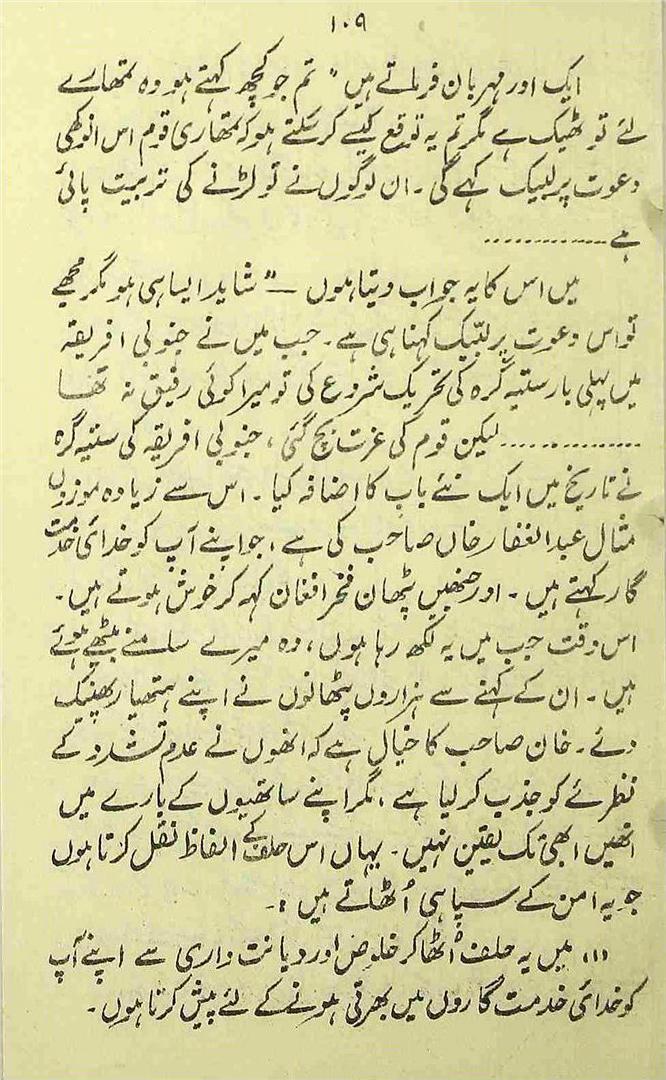 ۱۰۹
ایک اور مہربان فرماتے ہیں " تم جو کچھ کہتے ہو وہ تمھارے
لئے تو ٹھیک ہے مگر تم یہ توقع کیسے کر سکتے ہو کہ تمھاری قوم اس انوکھی
دعوت پر لبیک کہے گی۔ ان لوگوں نے تو لڑنے کی تربیت پائی
ہے ............
میں اس کا یہ جواب دیتا ہوں ــ" شاید ایسا ہی ہو مگر مجھے
تو اس دعوت پر لبّیک کہنا ہی ہے۔ جب میں نے جنوبی افریقہ
میں پہلی بار ستیہ گرہ کی تحریک شروع کی تو میرا کوئی رفیق نہ تھا
............... لیکن قوم کی عزت بچ گئی، جنوبی افریقہ کی ستیہ گرہ
نے تاریخ میں ایک نئے باب کا اضافہ کیا۔ اس سے زیادہ موزوں
مثال عبدالغفار خاں صاحب کی ہے، جو اپنے آپ کو خدائی خدمت
گار کہتے ہیں۔ اور جنھیں پٹھان فخر افغان کہہ کر خوش ہوتے ہیں۔
اس وقت جب میں یہ لکھ رہا ہوں، وہ میرے سامنے بیٹھے ہوئے
ہیں۔ ان کے کہنے سے ہزاروں پٹھانوں نے اپنے ہتھیار پھینک
دئے۔ خان صاحب کا خیال ہے کہ انھوں نے عدم تشدد کے
نظرئے کو جذب کر لیا ہے، مگر اپنے ساتھیوں کے بارے میں
انھیں ابھی تک یقین نہیں۔ یہاں اس حلف کے الفاظ نقل کرتا ہوں
جو یہ امن کے سپاہی اُٹھاتے ہیں :۔
،،، میں یہ حلف اُٹھا کر خلوص اور دیانت داری سے اپنے آپ
کو خدائی خدمت گاروں میں بھرتی ہونے کے لئے پیش کرتا ہوں۔